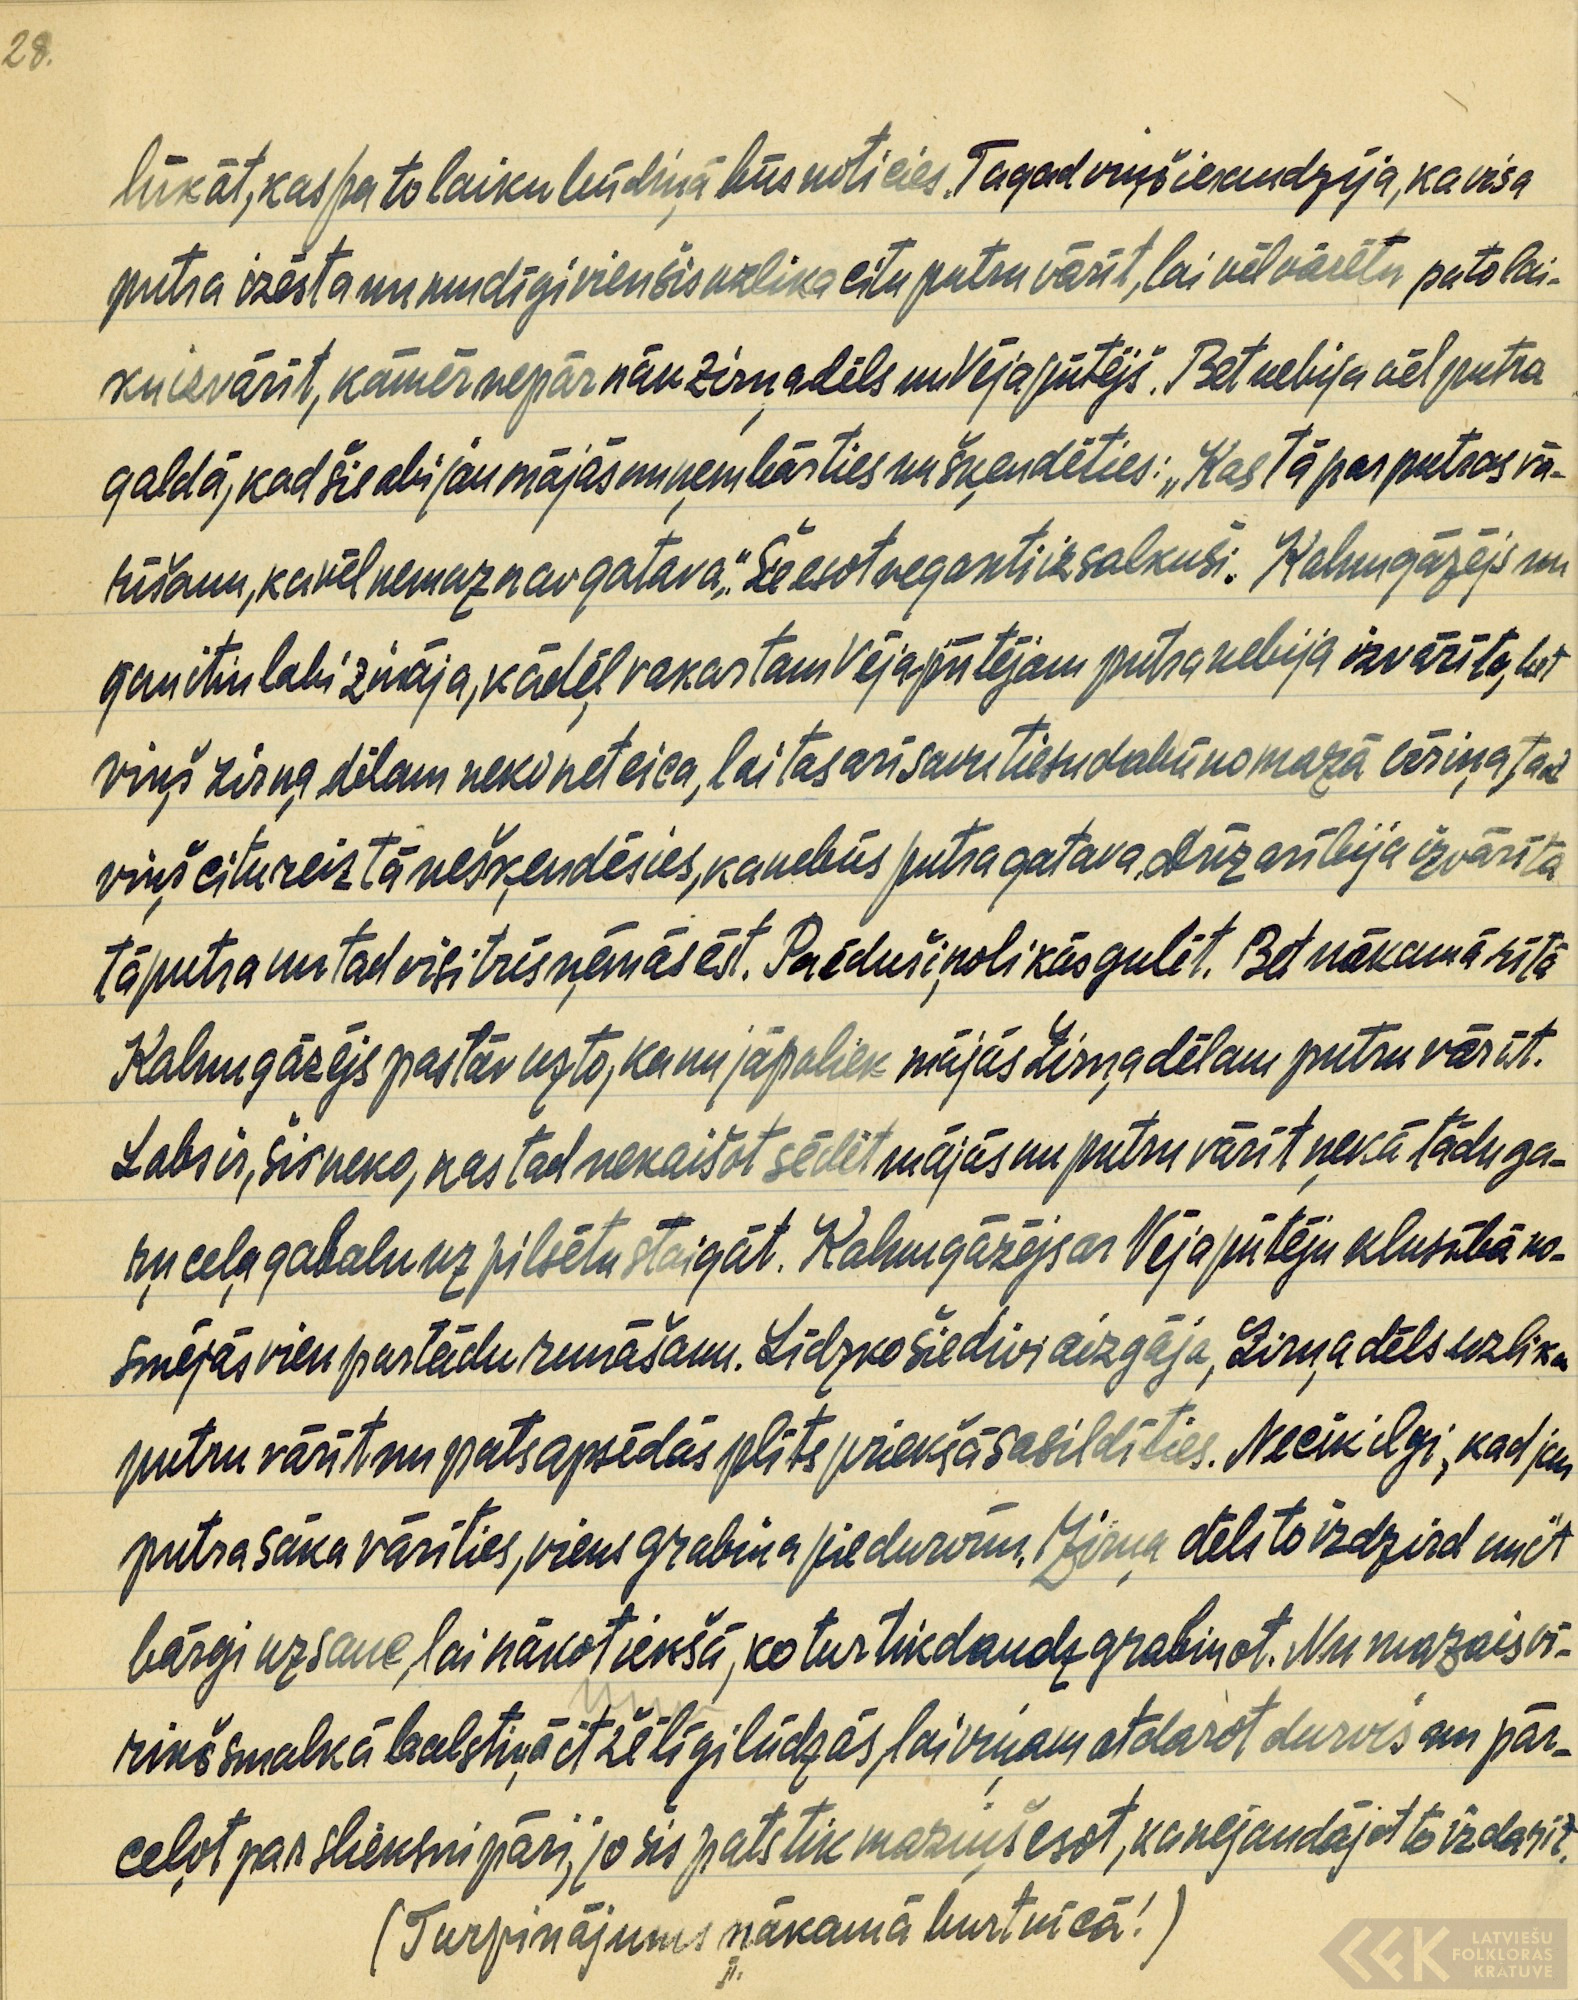 28.
lūkāt, kas pa to laiku būdiņā būs noticies. Tagad viņš ieraudzīja, ka visa
putra izēsta un mudīgi vien šis uzlika citu putru vārīt, lai vēl vārētu pa to lai-
ku izvārīt, kāmēr nepārnāk Zirņa dēls un Vēja pūtējš. Bet nebija vēl putra
galdā, kad šie abi jau mājās un ņem bārties un šķendēties: „Kas tā par putras vā-
rīšanu, ka vēl nemaz nav gatava." Šie esot neganti izsalkuši. Kalnu gāzējs nu
gan itin labi zināja, kādēļ vakar tam Vēja pūtējam putra nebija izvārīta, bet
viņš Zirņa dēlam neko neteica, lai tas arī savu tiesu dabū no mazā vīriņa, tad
viņš citureiz tā nešķendēsies, ka nebūs putra gatava. Drīz arī bija izvārīta
tā putra un tad visi trīs ņēmās ēst. Paēduši, nolikās gulēt. Bet nākamā rītā
Kalnu gāzējs pastāv uz to, ka nu jāpaliek mājās Zirņa dēlam putru vārīt.
Labs ir, šis neko, kas tad nekaišot sēdēt mājās un putru vārīt, nekā tādu ga-
ŗu ceļa gabalu uz pilsētu staigāt. Kalnu gāzējs ar Vēja pūtēju klusībā no-
smējās vien par tādu runāšanu. Līdzko šie divi aizgāja, Zirņa dēls uzlika
putru vārīt un pats apsēdās plīts priekšā sasildīties. Necik ilgi, kad jau
putra sāka vārīties, viens grabina pie durvīm. Zirņa dēls to izdzird un it
bārgi uzsauc, lai nākot iekšā, ko tur tik daudz grabinot. Nu mazais vī-
riņš smalkā balstiņā it žēlīgi lūdzās, lai viņam atdarot durvis un pār-
ceļot par slieksni pāri, jo šis pats tik maziņš esot, ka nejaudājot to izdarīt.
(Turpinājums nākamā burtnīcā!)
II.
LATVIEŠU
FOLKLORAS
KRĀTUVE